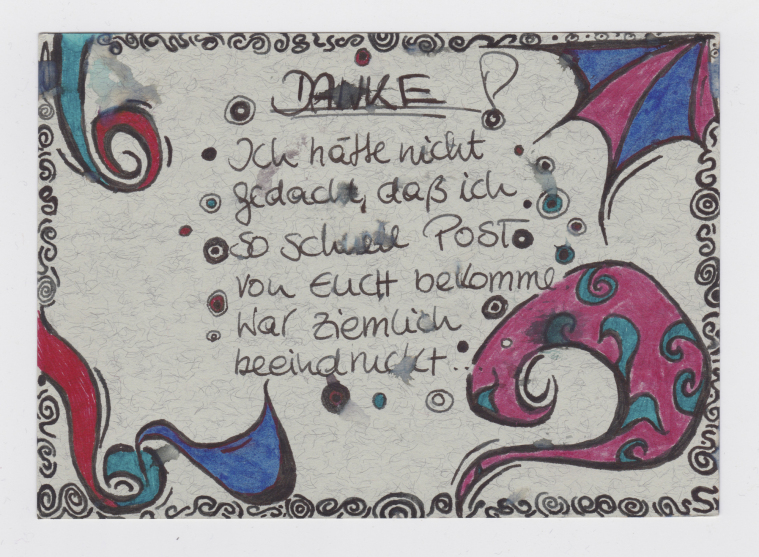 DANKE!
Ich hätte nicht
gedacht, daß ich
so schnell POST
von EUCH bekomme
War ziemlich
beeindruckt...